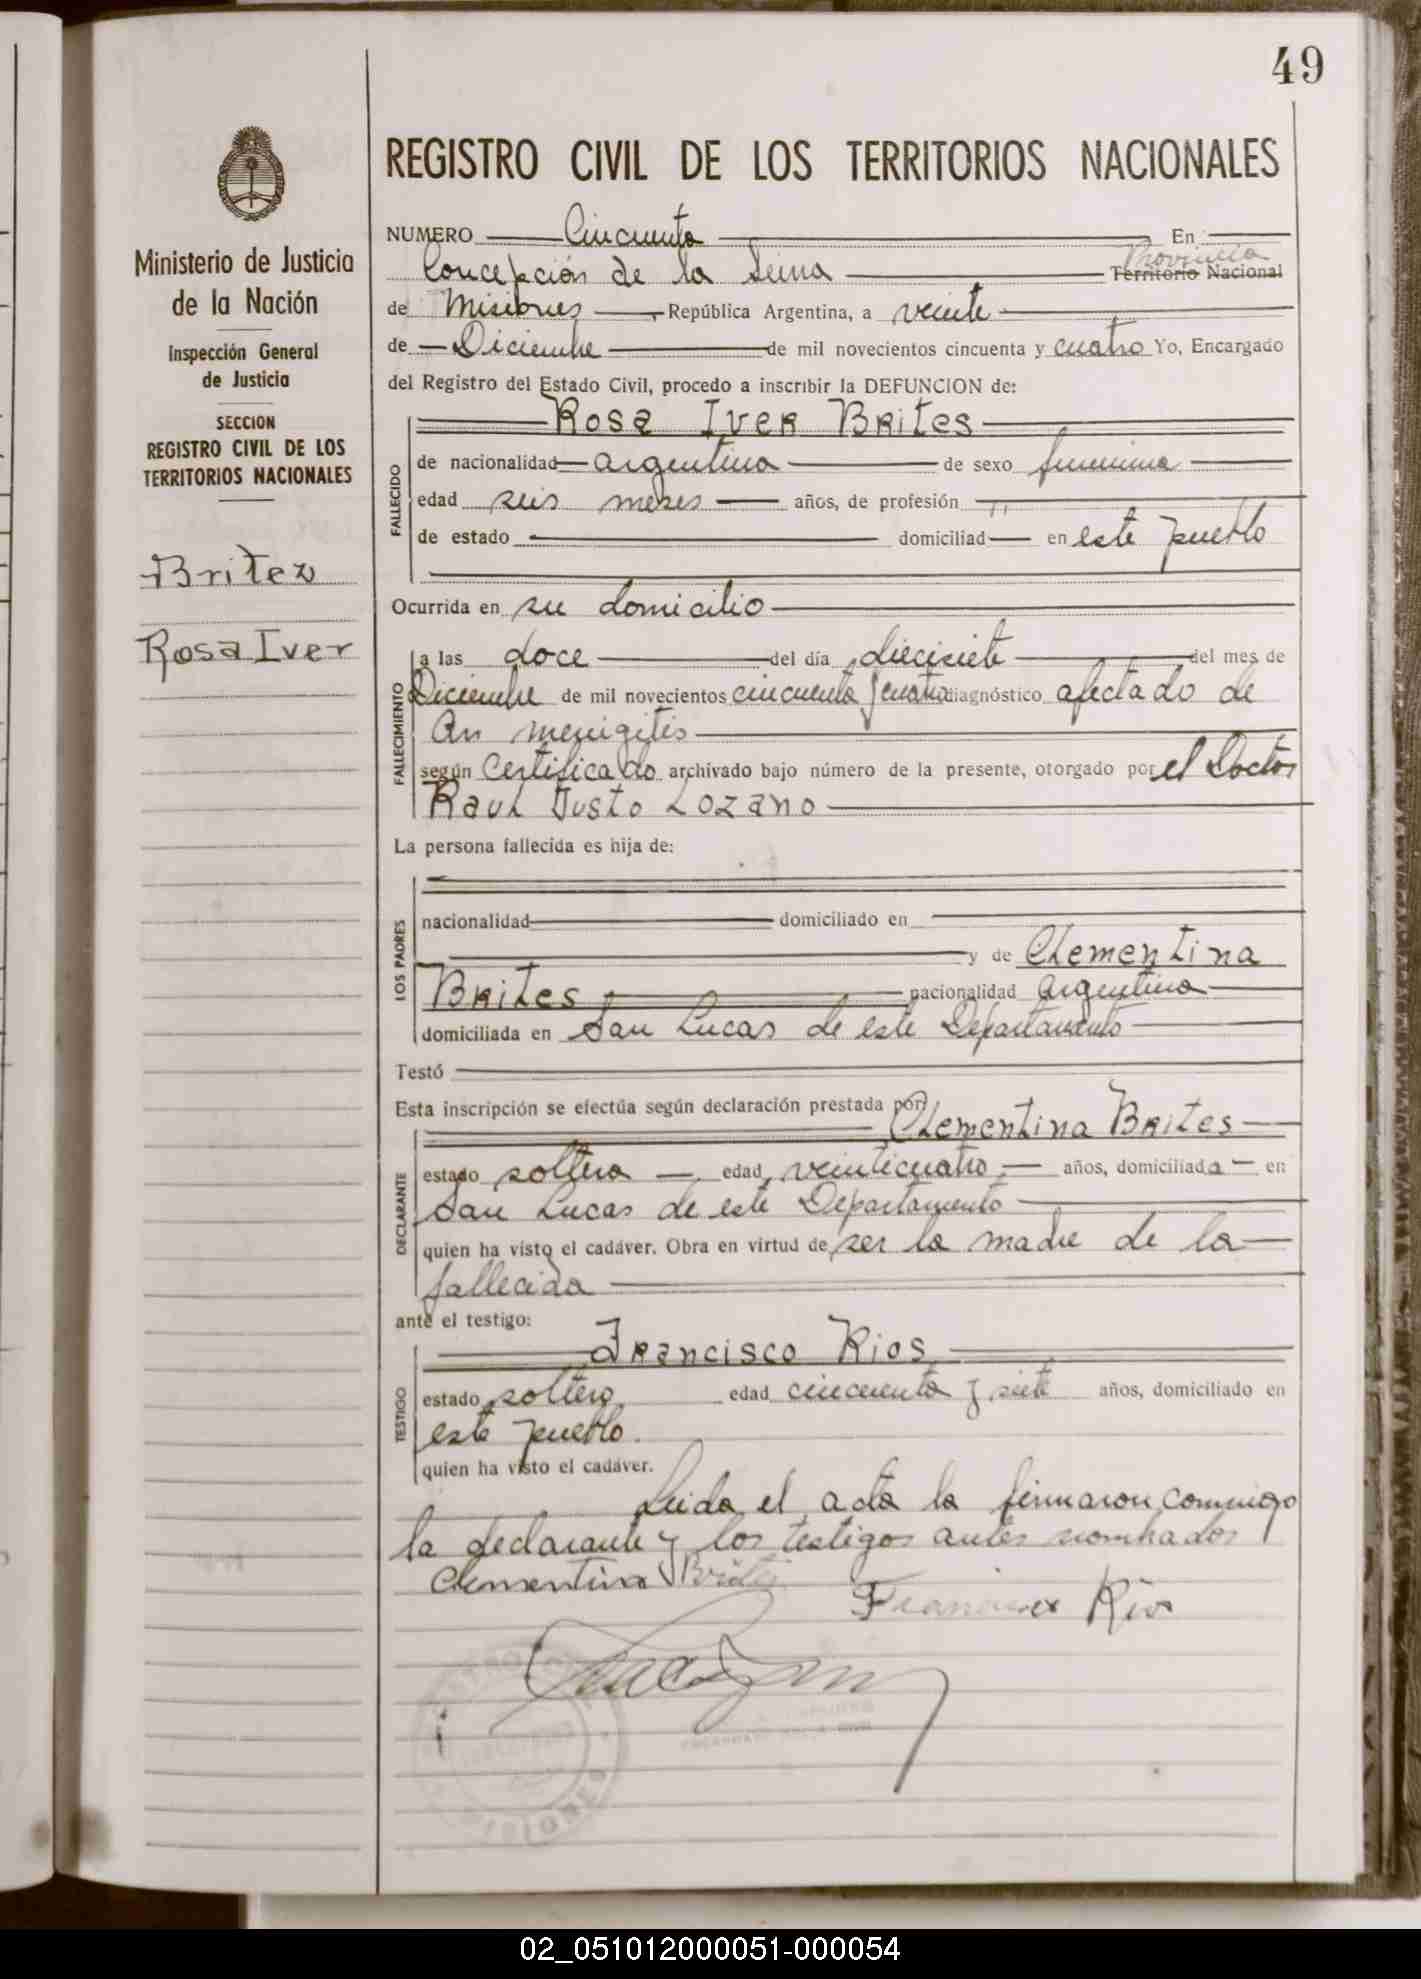 49
REGISTRO CIVIL DE LOS TERRITORIOS NACIONALES
Ministerio de Justicia
de la Nación
Inspección General
de Justicia
SECCION
REGISTRO CIVIL DE LOS
TERRITORIOS NACIONALES
Britez
Rosa Iver
NUMERO Cincuenta En
Provincia
Concepción de la Sierra Territorio Nacional
de Misiones, República Argentina, a veinte
de Diciembre de mil novecientos cincuenta y cuatro Yo, Encargado
del Registro del Estado Civil, procedo a inscribir la DEFUNCION de:
Rosa Iver Brites
FALLECIDO
de nacionalidad argentina de sexo femenina
edad seis meses años, de profesión
de estado domiciliad en este pueblo
Ocurrida en su domicilio
FALLECIMIENTO
a las doce del día diecisiete del mes de
Diciembre de mil novecientos cincuenta y cuatro diagnóstico afectado de
An menigitis
según Certificado archivado bajo número de la presente, otorgado por el Doctor
Raul Justo Lozano
La persona fallecida es hija de:
LOS PADRES
nacionalidad domiciliado en
y de Clementina
Brites nacionalidad argentina
domiciliada en San Lucas de este Departamento
Testó
Esta inscripción se efectúa según declaración prestada por:
Clementina Brites
DECLARANTE
estado soltera edad veinticuatro años, domiciliada en
San Lucas de este Departamento
quien ha visto el cadáver. Obra en virtud de ser la madre de la
fallecida
ante el testigo:
Francisco Rios
TESTIGO
estado soltero edad cincuenta y siete años, domiciliado en
este pueblo.
quien ha visto el cadáver.
Leida el acta la firmaron conmigo
la declarante y los testigos antes nombrados
Clementina Brites
Francisco Rios
MISIONES
02_051012000051-000054